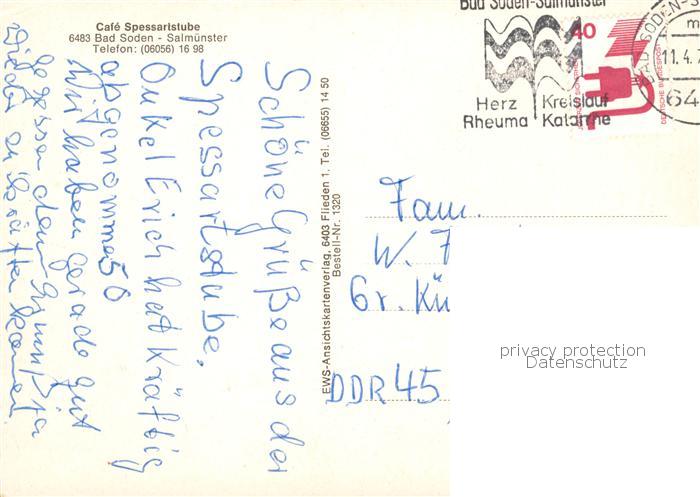 Café Spessartstube
6483 Bad Soden - Salmünster
Telefon: (06056) 16 98
Schöne Grüße aus der
Spessartstube.
Onkel Erich hat Kräftig
abgenommen
Wir haben gerade gut
gegessen damit
wieder zu Kräften kommt
EWS-Ansichtskartenverlag, 6403 Flieden 1, Tel. (06655) 14 50
Bestell-Nr. 1320
Bad Soden-Salmünster
Herz Kreislauf
Rheuma Katarrhe
40
DEUTSCHE BUNDESPOST
BAD SODEN-S
11.4.7
64
Fam.
W.
Gr. Kü
DDR 45
privacy protection
Datenschutz